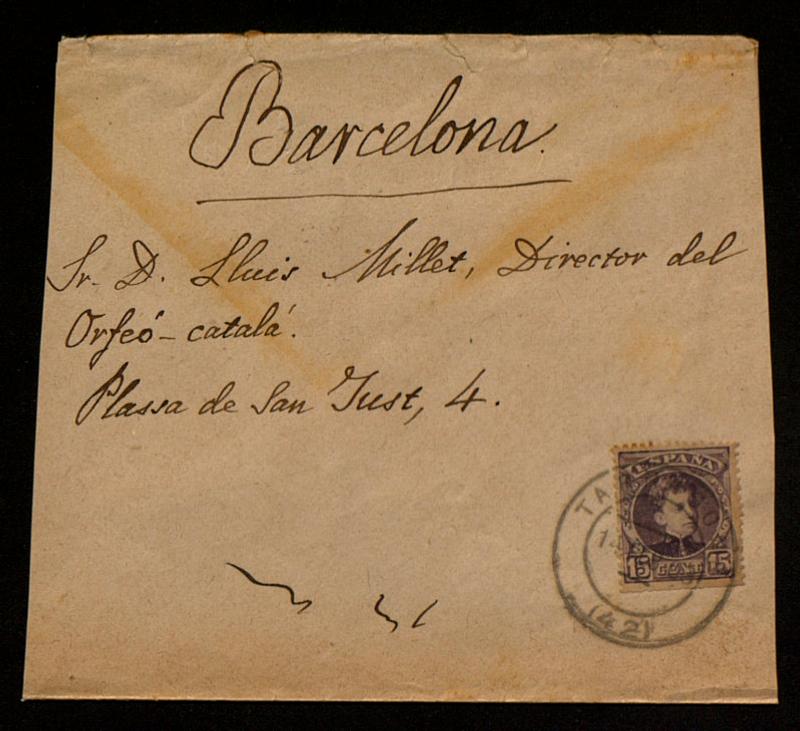 Barcelona.
Sr. D. Lluis Millet, Director del
Orfeó-catalá.
Plassa de San Just, 4.
ESPAÑA
15 CENT 15
(42)